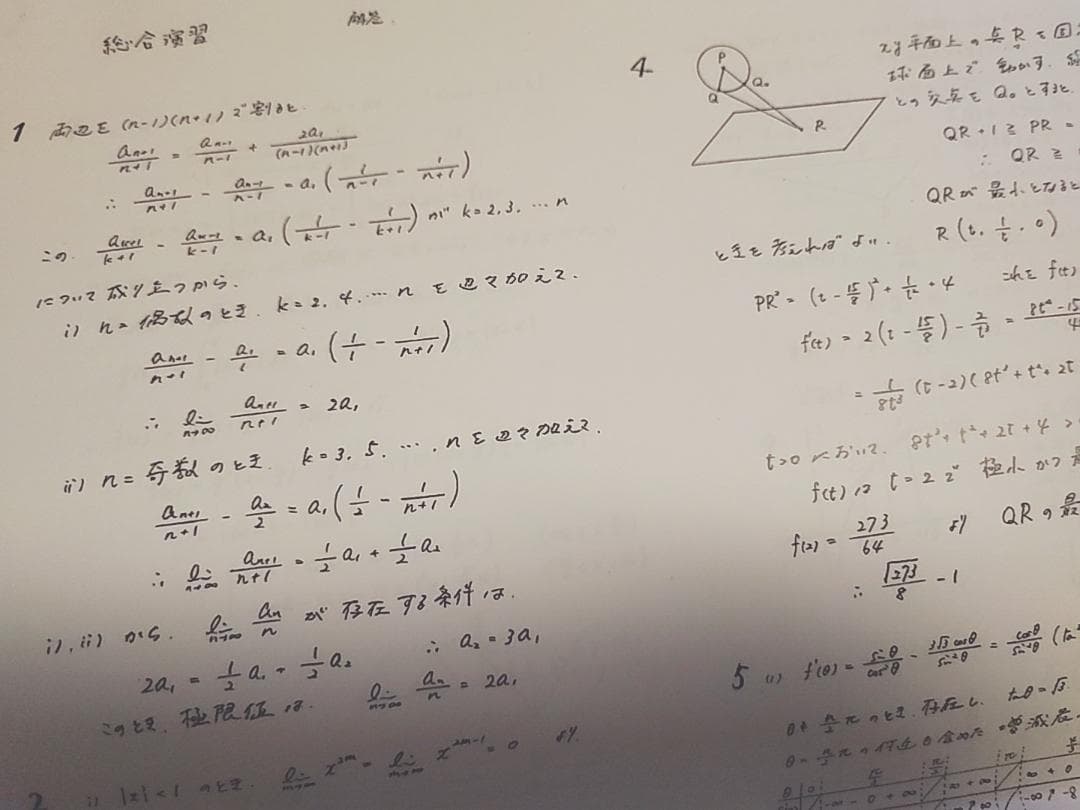 総合演習
解答
1 両辺を (n-1)(n+1) で割ると.
\frac{a_{n+1}}{n+1} = \frac{a_{n-1}}{n-1} + \frac{2a_1}{(n-1)(n+1)}
∴ \frac{a_{n+1}}{n+1} - \frac{a_{n-1}}{n-1} = a_1 ( \frac{1}{n-1} - \frac{1}{n+1} )
この. \frac{a_{k+1}}{k+1} - \frac{a_{k-1}}{k-1} = a_1 ( \frac{1}{k-1} - \frac{1}{k+1} ) が k=2,3,…n
について成り立つから.
i) n=偶数のとき. k=2, 4, … n を辺々加えて.
\frac{a_{n+1}}{n+1} - \frac{a_1}{1} = a_1 ( \frac{1}{1} - \frac{1}{n+1} )
∴ \lim_{n→∞} \frac{a_{n+1}}{n+1} = 2a_1
ii) n=奇数のとき. k=3, 5, …, n を辺々加えて.
\frac{a_{n+1}}{n+1} - \frac{a_2}{2} = a_1 ( \frac{1}{2} - \frac{1}{n+1} )
∴ \lim_{n→∞} \frac{a_{n+1}}{n+1} = \frac{1}{2} a_1 + \frac{1}{2} a_2
i), ii) から. \lim_{n→∞} \frac{a_n}{n} が存在する条件は.
2a_1 = \frac{1}{2} a_1 + \frac{1}{2} a_2 ∴ a_2 = 3a_1
このとき. 極限値は. \lim_{n→∞} \frac{a_n}{n} = 2a_1
2 i) |x|<1 のとき. \lim_{m→∞} x^{2m} = \lim_{m→∞} x^{2m-1} = 0 より.
4
P
Q
Q_0
R
xy平面上の点Rを固
球面上で動かす. 線
との交点を Q_0 とすると.
QR + 1 ≧ PR =
∴ QR ≧
QRが最小となると
ときを考えればよい. R ( t, \frac{1}{t}, 0 )
PR^2 = ( t - \frac{15}{8} )^2 + \frac{1}{t^2} + 4 これを f(t)
f'(t) = 2 ( t - \frac{15}{8} ) - \frac{2}{t^3} = \frac{8t^4 - 15
= \frac{1}{8t^3} (t-2)(8t^3 + t^2 + 2t
t>0 において. 8t^3 + t^2 + 2t + 4 >
f(t) は t=2 で 極小かつ最
f(2) = \frac{273}{64} より QRの最
∴ \frac{\sqrt{273}}{8} - 1
5 (1) f'(θ) = \frac{\sin θ}{\cos^2 θ} - \frac{3\sqrt{3} \cos θ}{\sin^2 θ} = \frac{\cos θ}{\sin^2 θ} (\tan^
θ ≠ \frac{n}{2} π のとき. 存在し. \tan θ = \sqrt{3}.
θ = \frac{n}{2} π の付近も含めた増減を